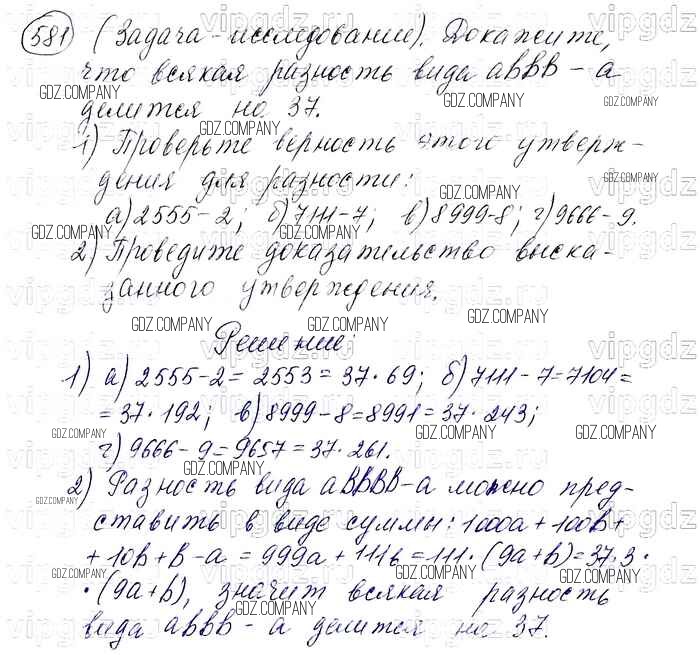 581 (Задача - исследование). Докажите,
что всякая разность вида aBBB - a
делится на 37.
1) Проверьте верность этого утверж-
дения для разности:
а) 2555-2; б) 7111-7; в) 8999-8; г) 9666-9.
2) Проведите доказательство выска-
занного утверждения.
Решение:
1) а) 2555-2 = 2553 = 37·69; б) 7111-7=7104=
=37·192; в) 8999-8=8991=37·243;
г) 9666-9=9657=37·261.
2) Разность вида aBBBB-a можно пред-
ставить в виде суммы: 1000a+100B+
+10B+B-a=999a+111b=111·(9a+b)=37·3·
·(9a+b), значит всякая разность
вида aBBB-a делится на 37.